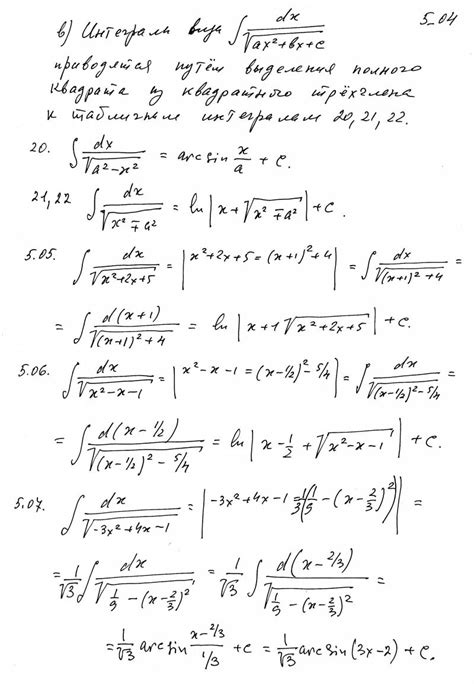 5_04
в) Интегралы вида ∫ dx/√(ax²+bx+c)
приводятся путём выделения полного
квадрата из квадратного трёхчлена
к табличным интегралам 20, 21, 22.
20. ∫ dx/√(a²−x²) = arcsin x/a + C.
21,22 ∫ dx/√(x²∓a²) = ln|x+√(x²∓a²)|+C.
5.05. ∫ dx/√(x²+2x+5) = |x²+2x+5=(x+1)²+4| = ∫ dx/√((x+1)²+4) =
= ∫ d(x+1)/√((x+1)²+4) = ln|x+1√(x²+2x+5)|+C.
5.06. ∫ dx/√(x²−x−1) = |x²−x−1=(x−1/2)²−5/4| = ∫ dx/√((x−1/2)²−5/4) =
= ∫ d(x−1/2)/√((x−1/2)²−5/4) = ln|x−1/2+√(x²−x−1)|+C.
5.07. ∫ dx/√(−3x²+4x−1) = |−3x²+4x−1=3(1/9−(x−2/3)²)| =
= 1/√3 ∫ dx/√(1/9−(x−2/3)²) = 1/√3 ∫ d(x−2/3)/√(1/9−(x−2/3)²) =
= 1/√3 arcsin (x−2/3)/(1/3) + C = 1/√3 arcsin(3x−2)+C.